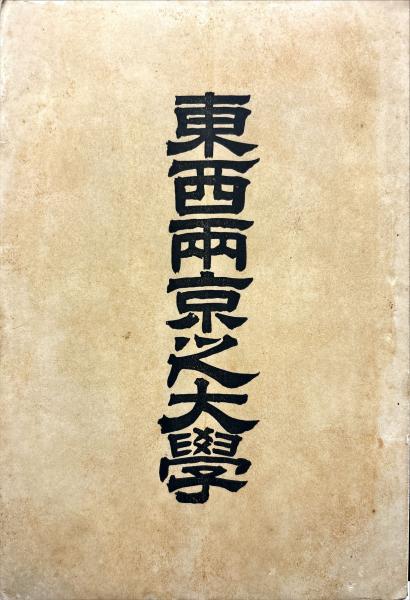 東西兩京之大學